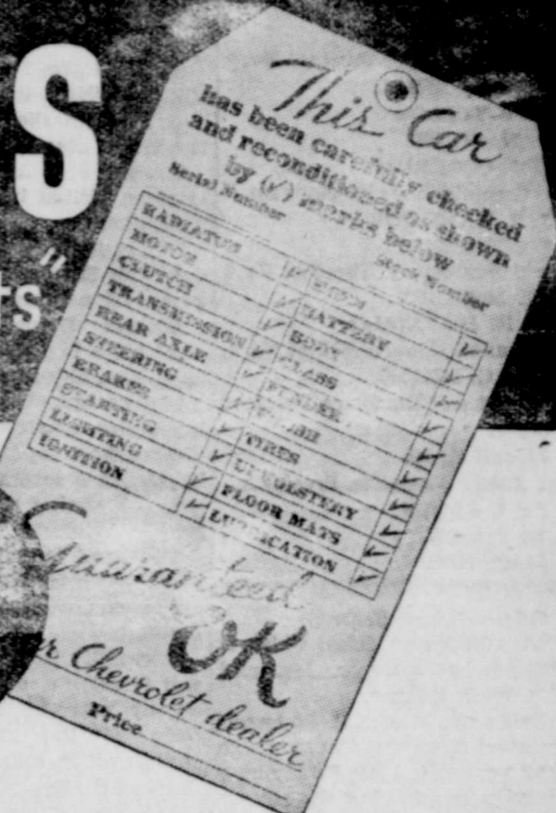 S
ts"
This Car
has been carefully checked
and reconditioned as shown
by (✓) marks below
Serial Number Stock Number
RADIATOR ✓ HORN ✓
MOTOR ✓ BATTERY ✓
CLUTCH ✓ BODY ✓
TRANSMISSION ✓ GLASS ✓
REAR AXLE ✓ FENDER ✓
STEERING ✓ FINISH ✓
BRAKES ✓ TIRES ✓
STARTING ✓ UPHOLSTERY ✓
LIGHTING ✓ FLOOR MATS ✓
IGNITION ✓ LUBRICATION ✓
Guaranteed
OK
r Chevrolet dealer
Price